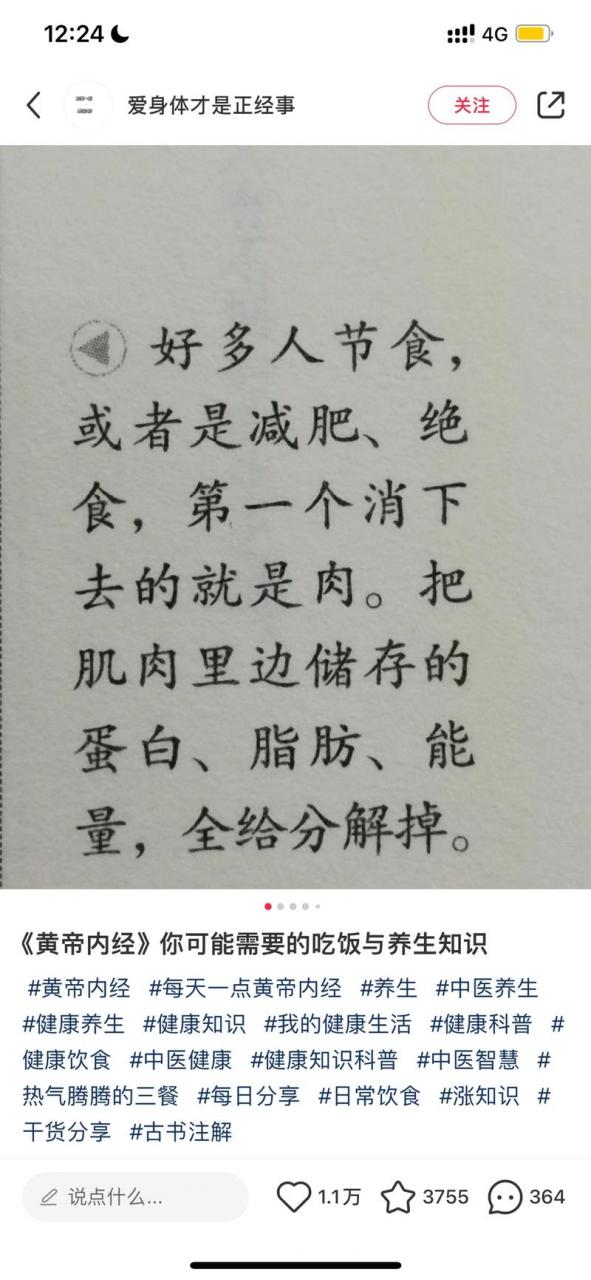 12:24
4G
爱身体才是正经事
关注
好多人节食，
或者是减肥、绝
食，第一个消下
去的就是肉。把
肌肉里边储存的
蛋白、脂肪、能
量，全给分解掉。
《黄帝内经》你可能需要的吃饭与养生知识
#黄帝内经 #每天一点黄帝内经 #养生 #中医养生
#健康养生 #健康知识 #我的健康生活 #健康科普 #
健康饮食 #中医健康 #健康知识科普 #中医智慧 #
热气腾腾的三餐 #每日分享 #日常饮食 #涨知识 #
干货分享 #古书注解
说点什么...
1.1万
3755
364